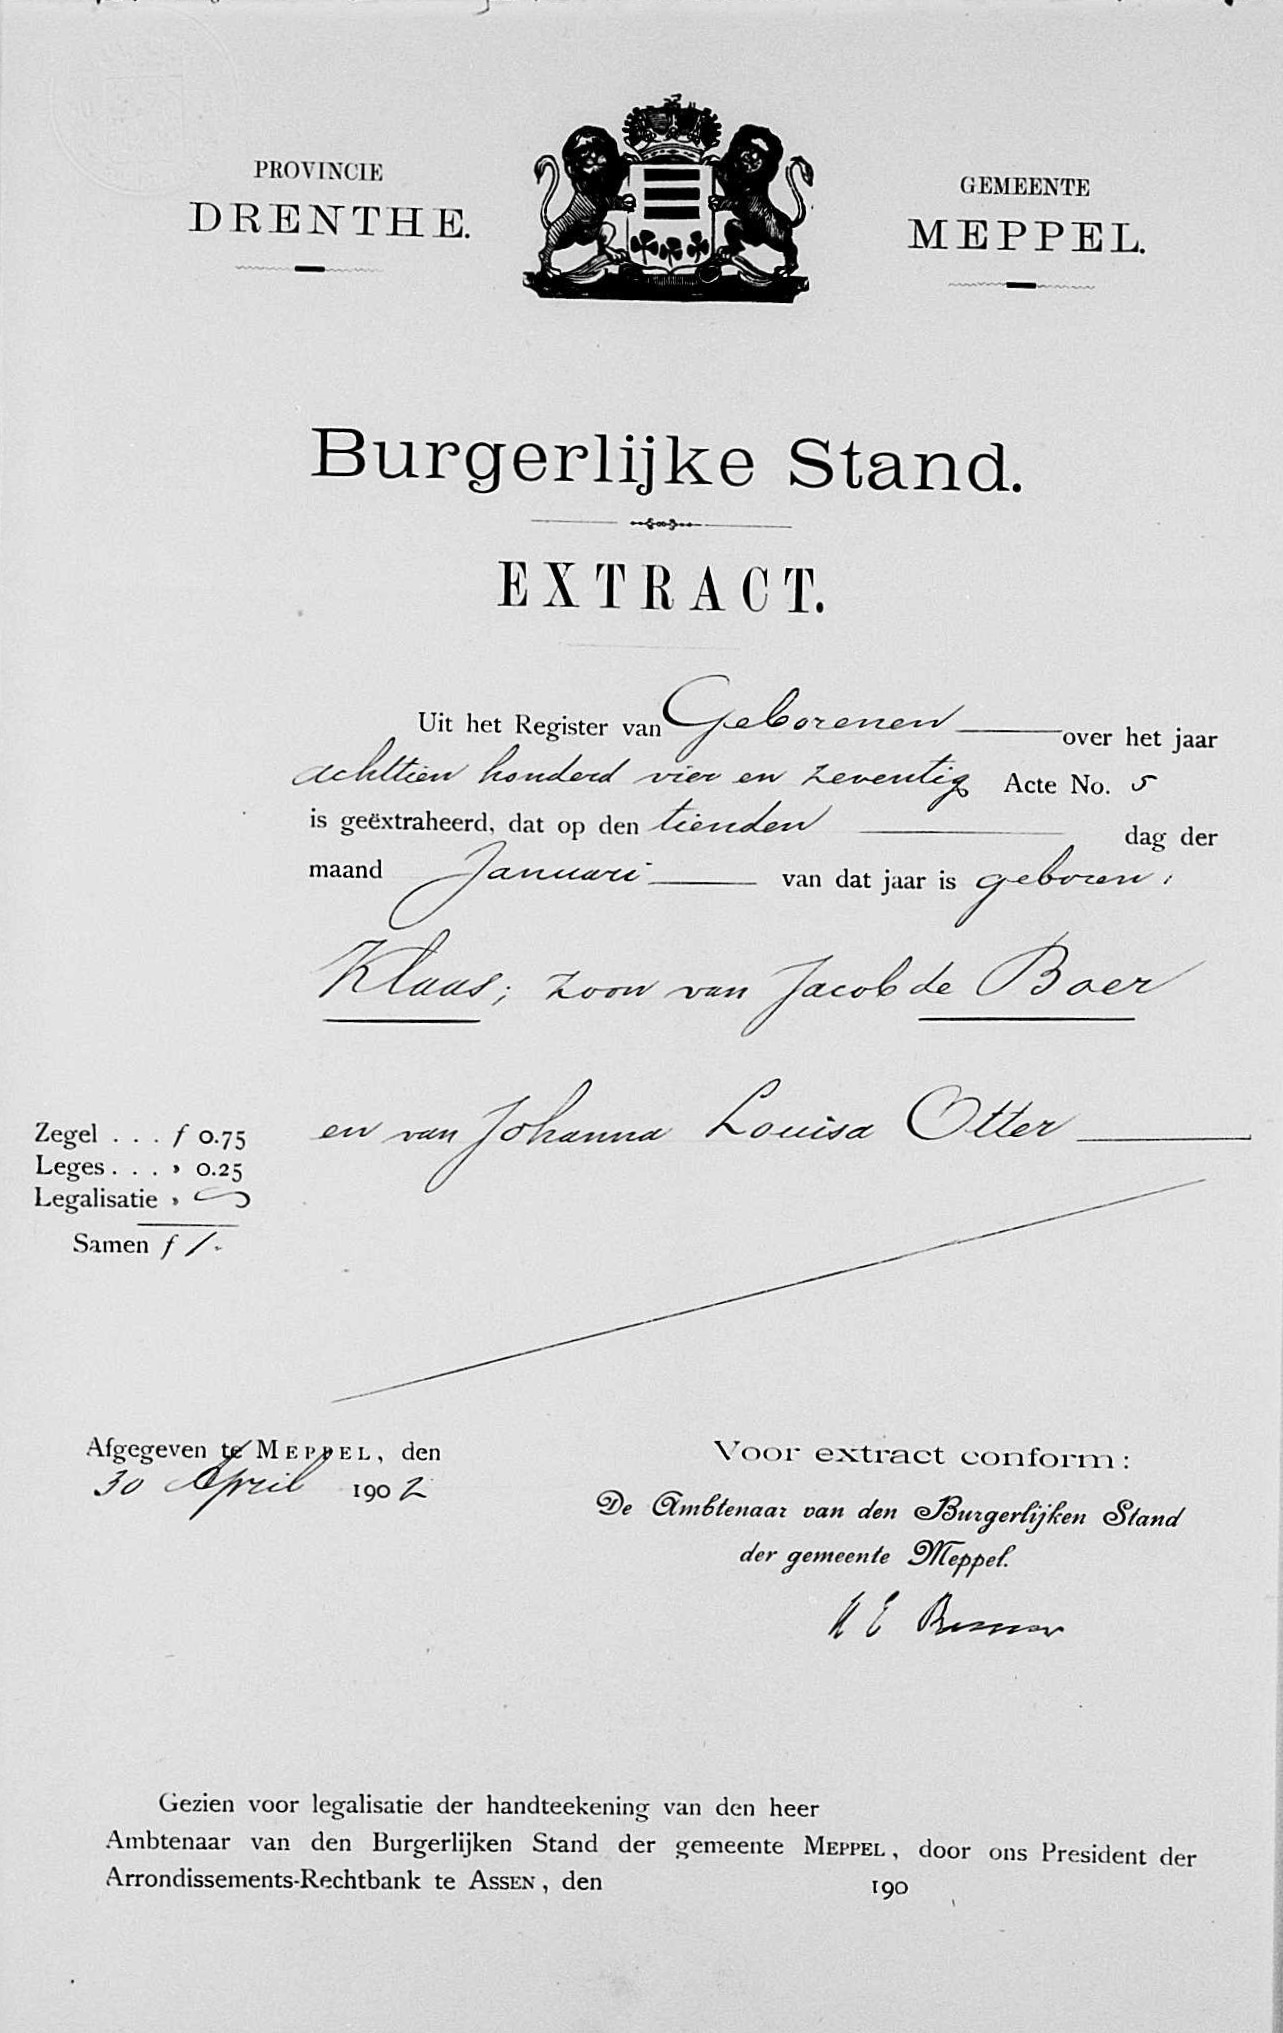 PROVINCIE
DRENTHE.
GEMEENTE
MEPPEL.
Burgerlijke Stand.
EXTRACT.
Uit het Register van Geborenen over het jaar
achttien honderd vier en zeventig Acte No. 5
is geëxtraheerd, dat op den tienden dag der
maand Januari van dat jaar is geboren:
Klaas; zoon van Jacob de Boer
en van Johanna Louisa Otter
Zegel . . . f 0.75
Leges . . . » 0.25
Legalisatie »
Samen f 1.-
Afgegeven te MEPPEL, den
30 April 1902
Voor extract conform:
De Ambtenaar van den Burgerlijken Stand
der gemeente Meppel.
Gezien voor legalisatie der handteekening van den heer
Ambtenaar van den Burgerlijken Stand der gemeente MEPPEL, door ons President der
Arrondissements-Rechtbank te ASSEN, den 190